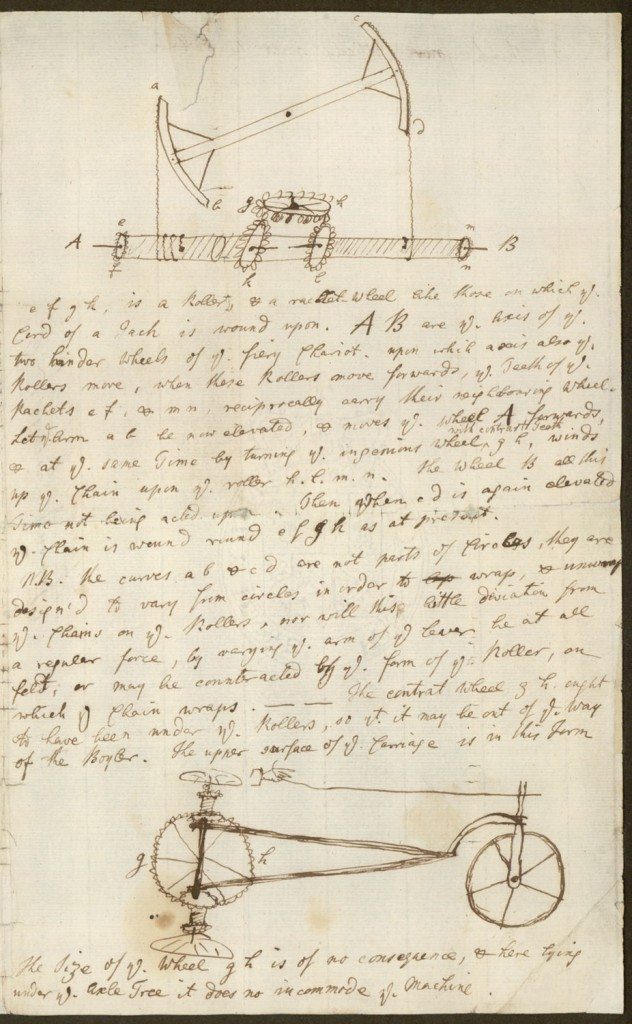 c
a
d
b
g
h
e
m
A
B
f
k
l
n
e f g h, is a Roller, & a racket wheel like those on which ye.
Cord of a Jack is wound upon. A B are ye. axis of ye.
two hinder wheels of ye. fiery Chariot. upon which axis also ye.
Rollers move, when these Rollers move forwards, ye. Teeth of ye.
Rackets e f, & m n, reciprocally carry their neighbouring wheel.
Let ye. arm a b be now elevated, & moves ye. wheel A forwards,
with contrary Teeth
& at ye. same Time by turning ye. ingenious wheel, g h, winds
up ye. Chain upon ye. roller k. l. m. n. The wheel B all this
Time not being acted upon. Then when c d is again elevated
ye. Chain is wound round e f g h as at present.
NB. the curves a b & c d are not parts of Circles, they are
design'd to vary from circles in order to wrap, & unwrap
ye. Chains on ye. Rollers, nor will this little diviation from
a regular force, by varying ye. arm of ye leaver be at all
felt, or may be counteracted by ye. form of ye. Roller, on
which ye Chain wraps. — — The contrat wheel g h. ought
to have been under ye. Rollers, so yt. it may be out of ye. way
of the Boyler. The upper surface of ye. Carriage is in this Form
g
h
The Size of ye. Wheel g h is of no consequence, & here lying
under ye. axle Tree it does no incommode ye. Machine.